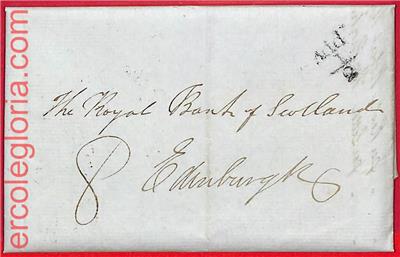 ercolegloria.com
Add
1/2
The Royal Bank of Scotland
8 Edinburgh